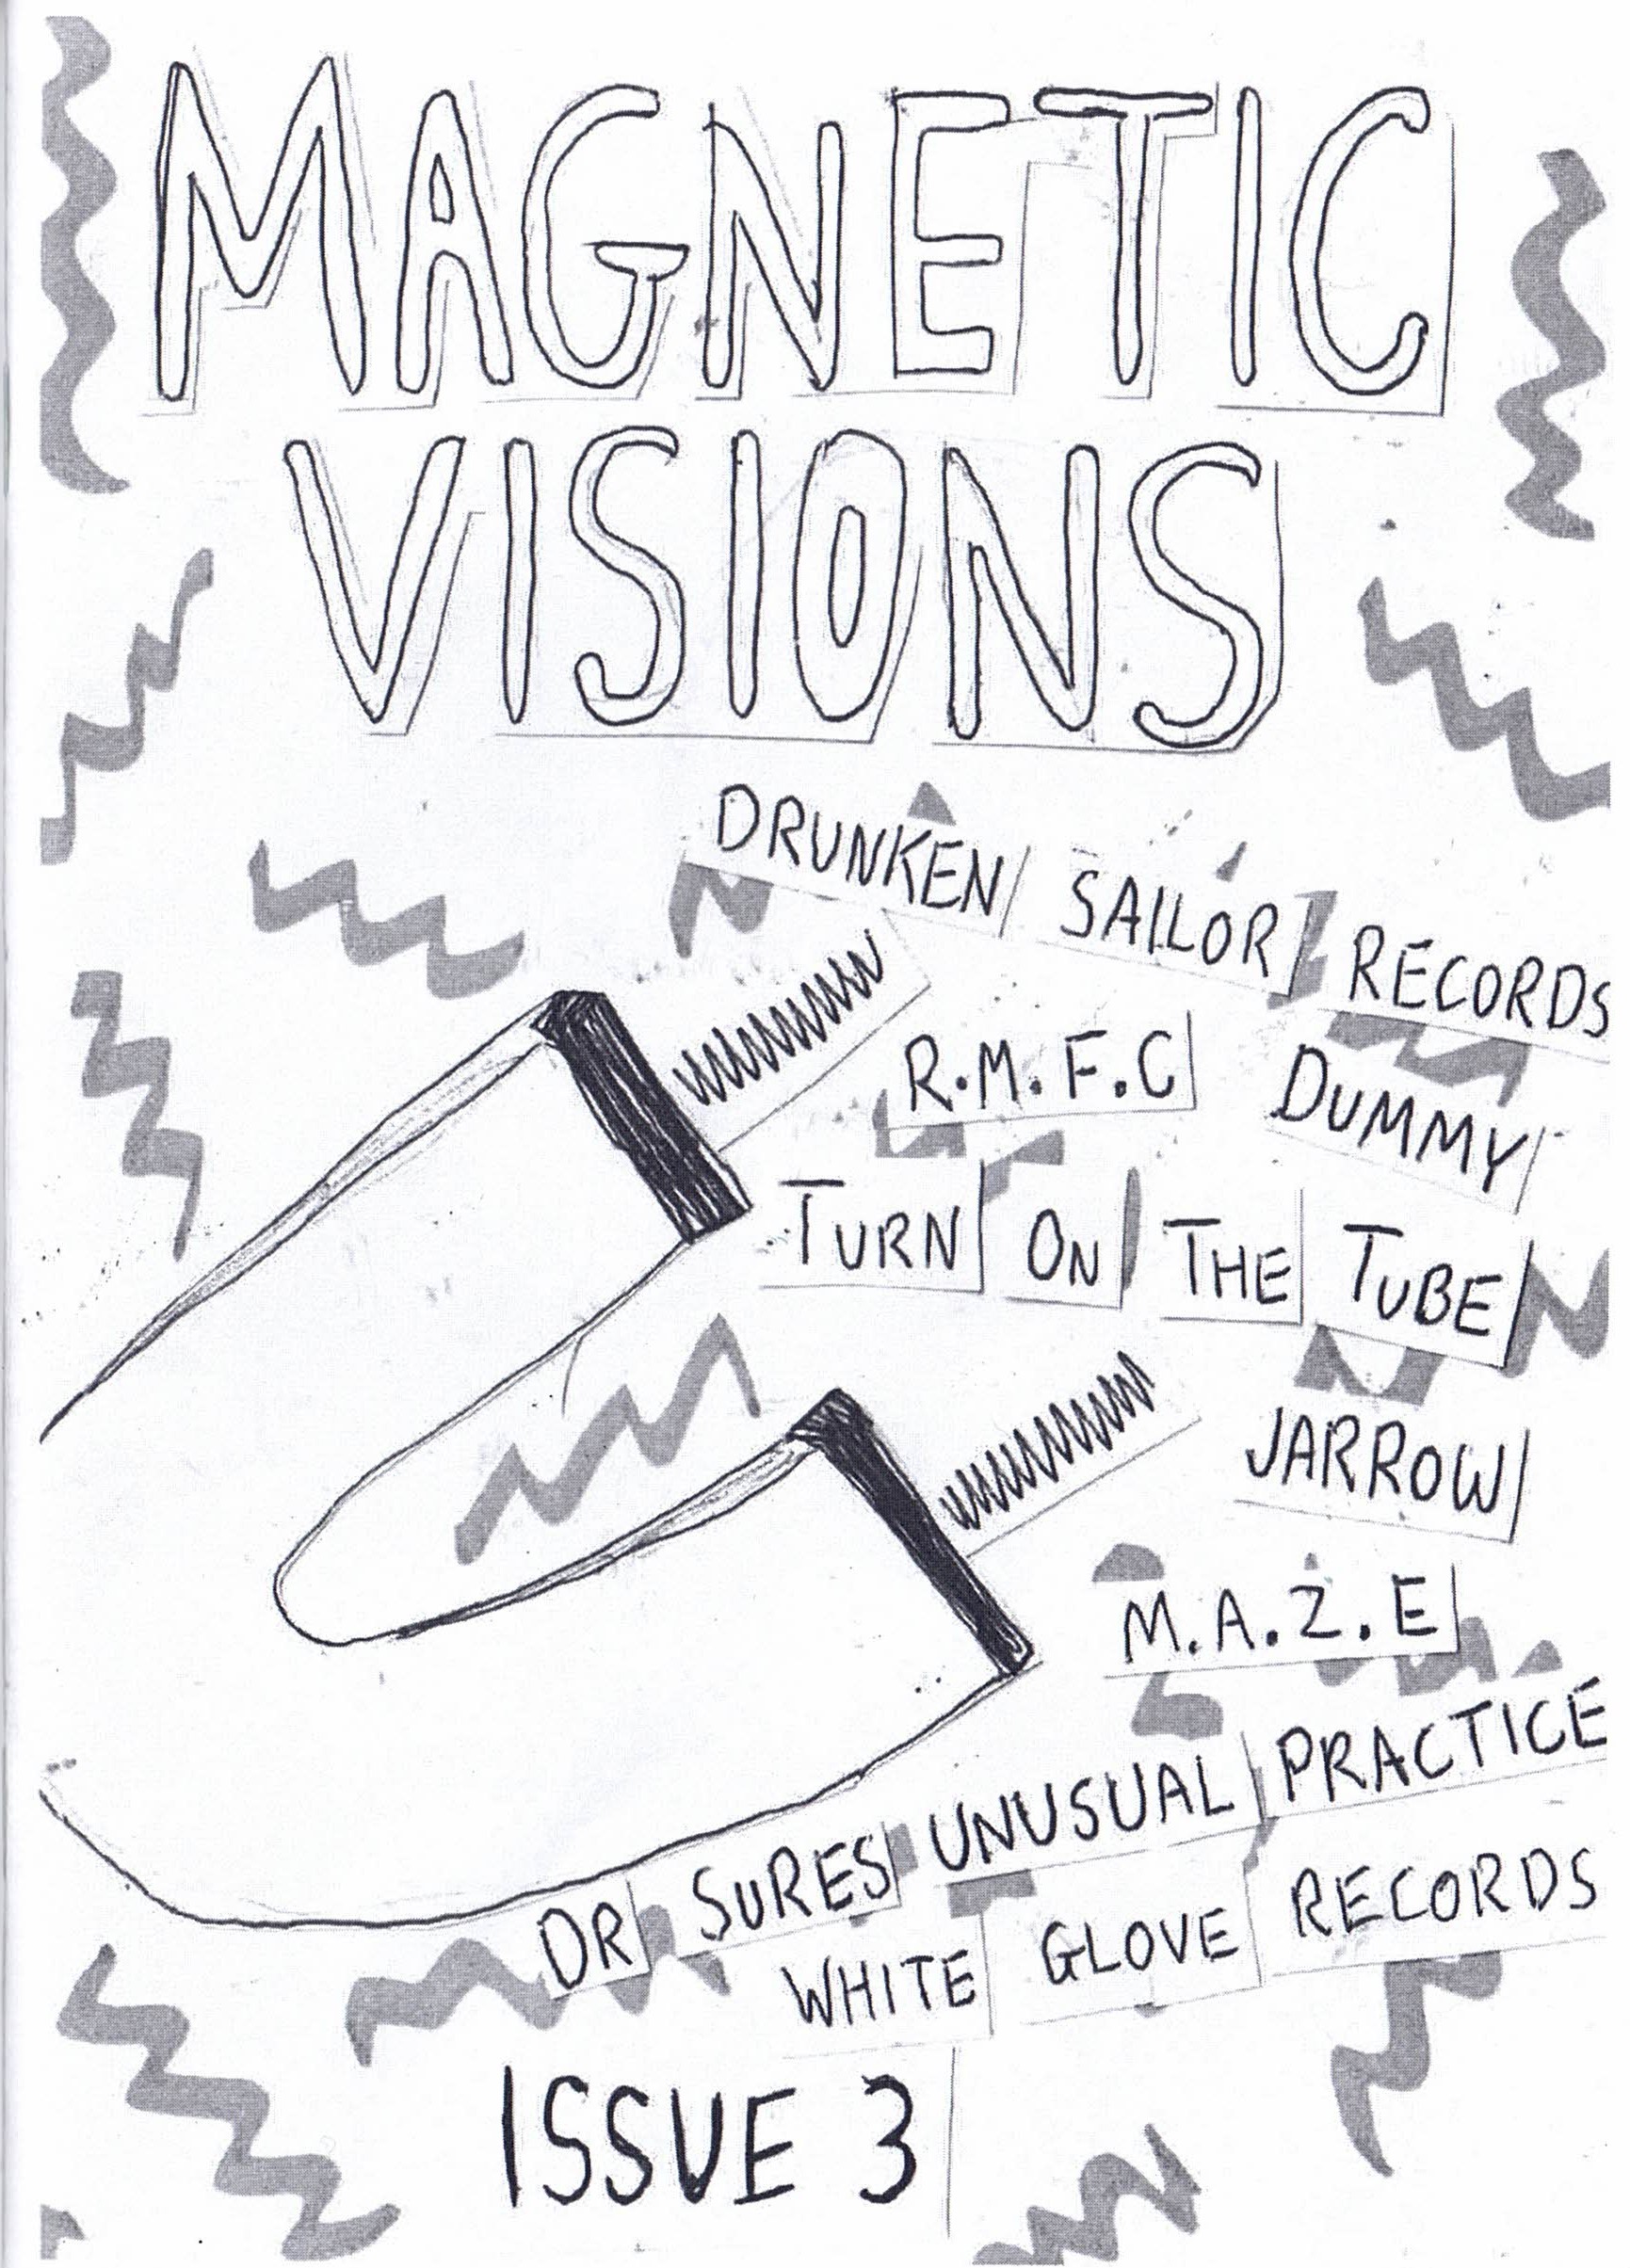 MAGNETIC
VISIONS
DRUNKEN SAILOR RECORDS
R.M.F.C DUMMY
TURN ON THE TUBE
JARROW
M.A.Z.E
DR SURES UNUSUAL PRACTICE
WHITE GLOVE RECORDS
ISSUE 3